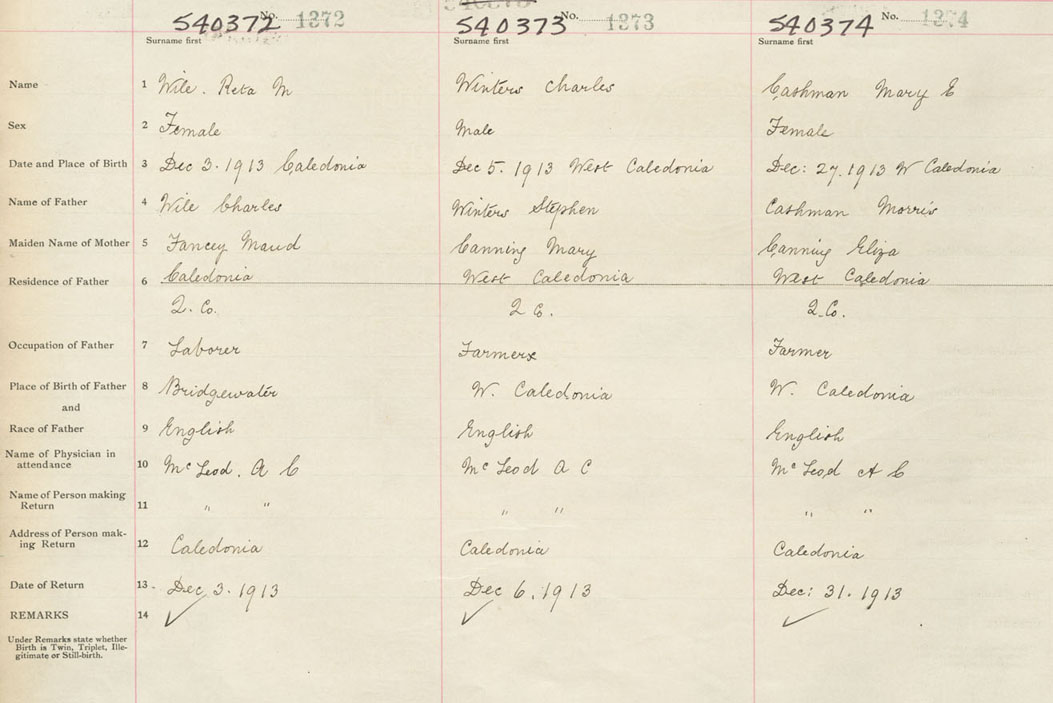 540372 No. 1372 540373 No. 1373 540374 No. 1374
Surname first Surname first Surname first
Name 1 Wile. Reta M Winters Charles Cashman Mary E
Sex 2 Female Male Female
Date and Place of Birth 3 Dec 3. 1913 Caledonia Dec 5. 1913 West Caledonia Dec: 27. 1913 W Caledonia
Name of Father 4 Wile Charles Winters Stephen Cashman Morris
Maiden Name of Mother 5 Fancey Maud Canning Mary Canning Eliza
Residence of Father 6 Caledonia West Caledonia West Caledonia
Q. Co. Q Co. Q. Co.
Occupation of Father 7 Laborer Farmer Farmer
Place of Birth of Father 8 Bridgewater W. Caledonia W. Caledonia
and
Race of Father 9 English English English
Name of Physician in
attendance 10 McLeod. A C McLeod A C McLeod A C
Name of Person making
Return 11 " " " " " "
Address of Person mak-
ing Return 12 Caledonia Caledonia Caledonia
Date of Return 13 Dec 3. 1913 Dec 6. 1913 Dec: 31. 1913
REMARKS 14 ✓ ✓ ✓
Under Remarks state whether
Birth is Twin, Triplet, Ille-
gitimate or Still-birth.